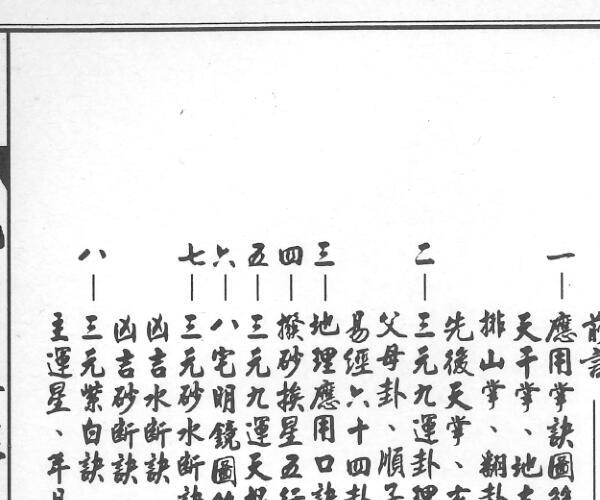 前言
一｜應用掌訣圖
天干掌、地支
排山掌、翻卦
先後天掌、
二｜三元九運卦理
父母卦、順子
易經六十四卦
三｜地理應用口訣
四｜撥砂挨星五行
五｜三元九運天
六｜八宅明鏡圖
七｜三元砂水斷訣
凶吉水斷訣
凶吉砂斷訣
八｜三元紫白訣
主運星、年月